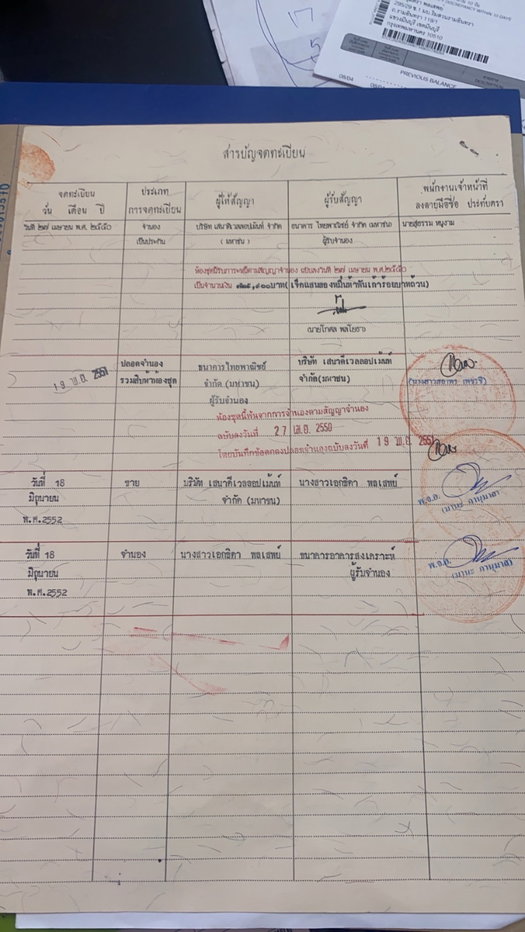 PREVIOUS BALANCE
สารบัญจดทะเบียน
จดทะเบียน
วัน เดือน ปี
ประเภท
การจดทะเบียน
ผู้ให้สัญญา
ผู้รับสัญญา
พนักงานเจ้าหน้าที่
ลงลายมือชื่อ ประทับตรา
วันที่ ๒๗ เมษายน พ.ศ. ๒๕๕๐
จำนอง
เป็นประกัน
บริษัท เสนาดีเวลลอปเม้นท์ จำกัด
( มหาชน )
ธนาคาร ไทยพาณิชย์ จำกัด (มหาชน)
ผู้รับจำนอง
นายสุธรรม หนูงาม
ห้องชุดนี้รับภาระหนี้ตามสัญญาจำนอง ฉบับลงวันที่ ๒๗ เมษายน พ.ศ.๒๕๕๐
เป็นจำนวนเงิน
19 พ.ย. 2551
ปลอดจำนอง
รวมสิบห้าห้องชุด
ธนาคารไทยพาณิชย์
จำกัด (มหาชน)
ผู้รับจำนอง
บริษัท เสนาดีเวลลอปเม้นท์
จำกัด(มหาชน)
ห้องชุดนี้พ้นจากการจำนองตามสัญญาจำนอง
ฉบับลงวันที่ 27 เม.ย. 2550
โดยบันทึกข้อตกลงปลอดจำนองฉบับลงวันที่ 19 พ.ย. 2551
วันที่ 18
มิถุนายน
พ.ศ.2552
ขาย
บริษัท เสนาดีเวลลอปเม้นท์
จำกัด (มหาชน)
นางสาวเอกธิดา พลเสพย์
พ.อ.อ.
วันที่ 18
มิถุนายน
พ.ศ.2552
จำนอง
นางสาวเอกธิดา พลเสพย์
ธนาคารอาคารสงเคราะห์
ผู้รับจำนอง
พ.อ.อ.